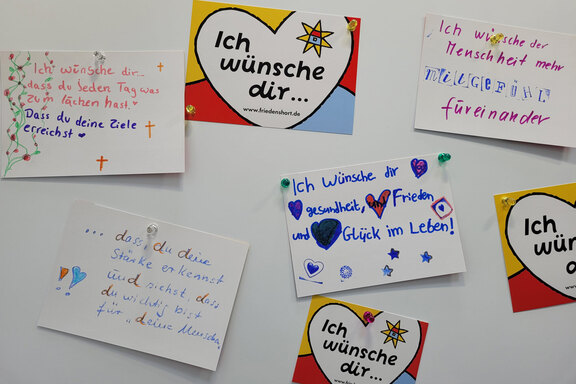 Ich wünsche dir...
dass du jeden Tag was
zum lachen hast.
Dass du deine Ziele
erreichst
Ich
wünsche
dir...
www.friedenshort.de
Ich wünsche der
Menschheit mehr
MITGEFÜHL
füreinander
Ich Wünsche dir
gesundheit, und Frieden
und Glück im Leben!
... dass du deine
Stärke erkennst
und siehst, dass
du wichtig bist
für deine Menschen
Ich
wünsche
dir...
Ich
wün
dir
www